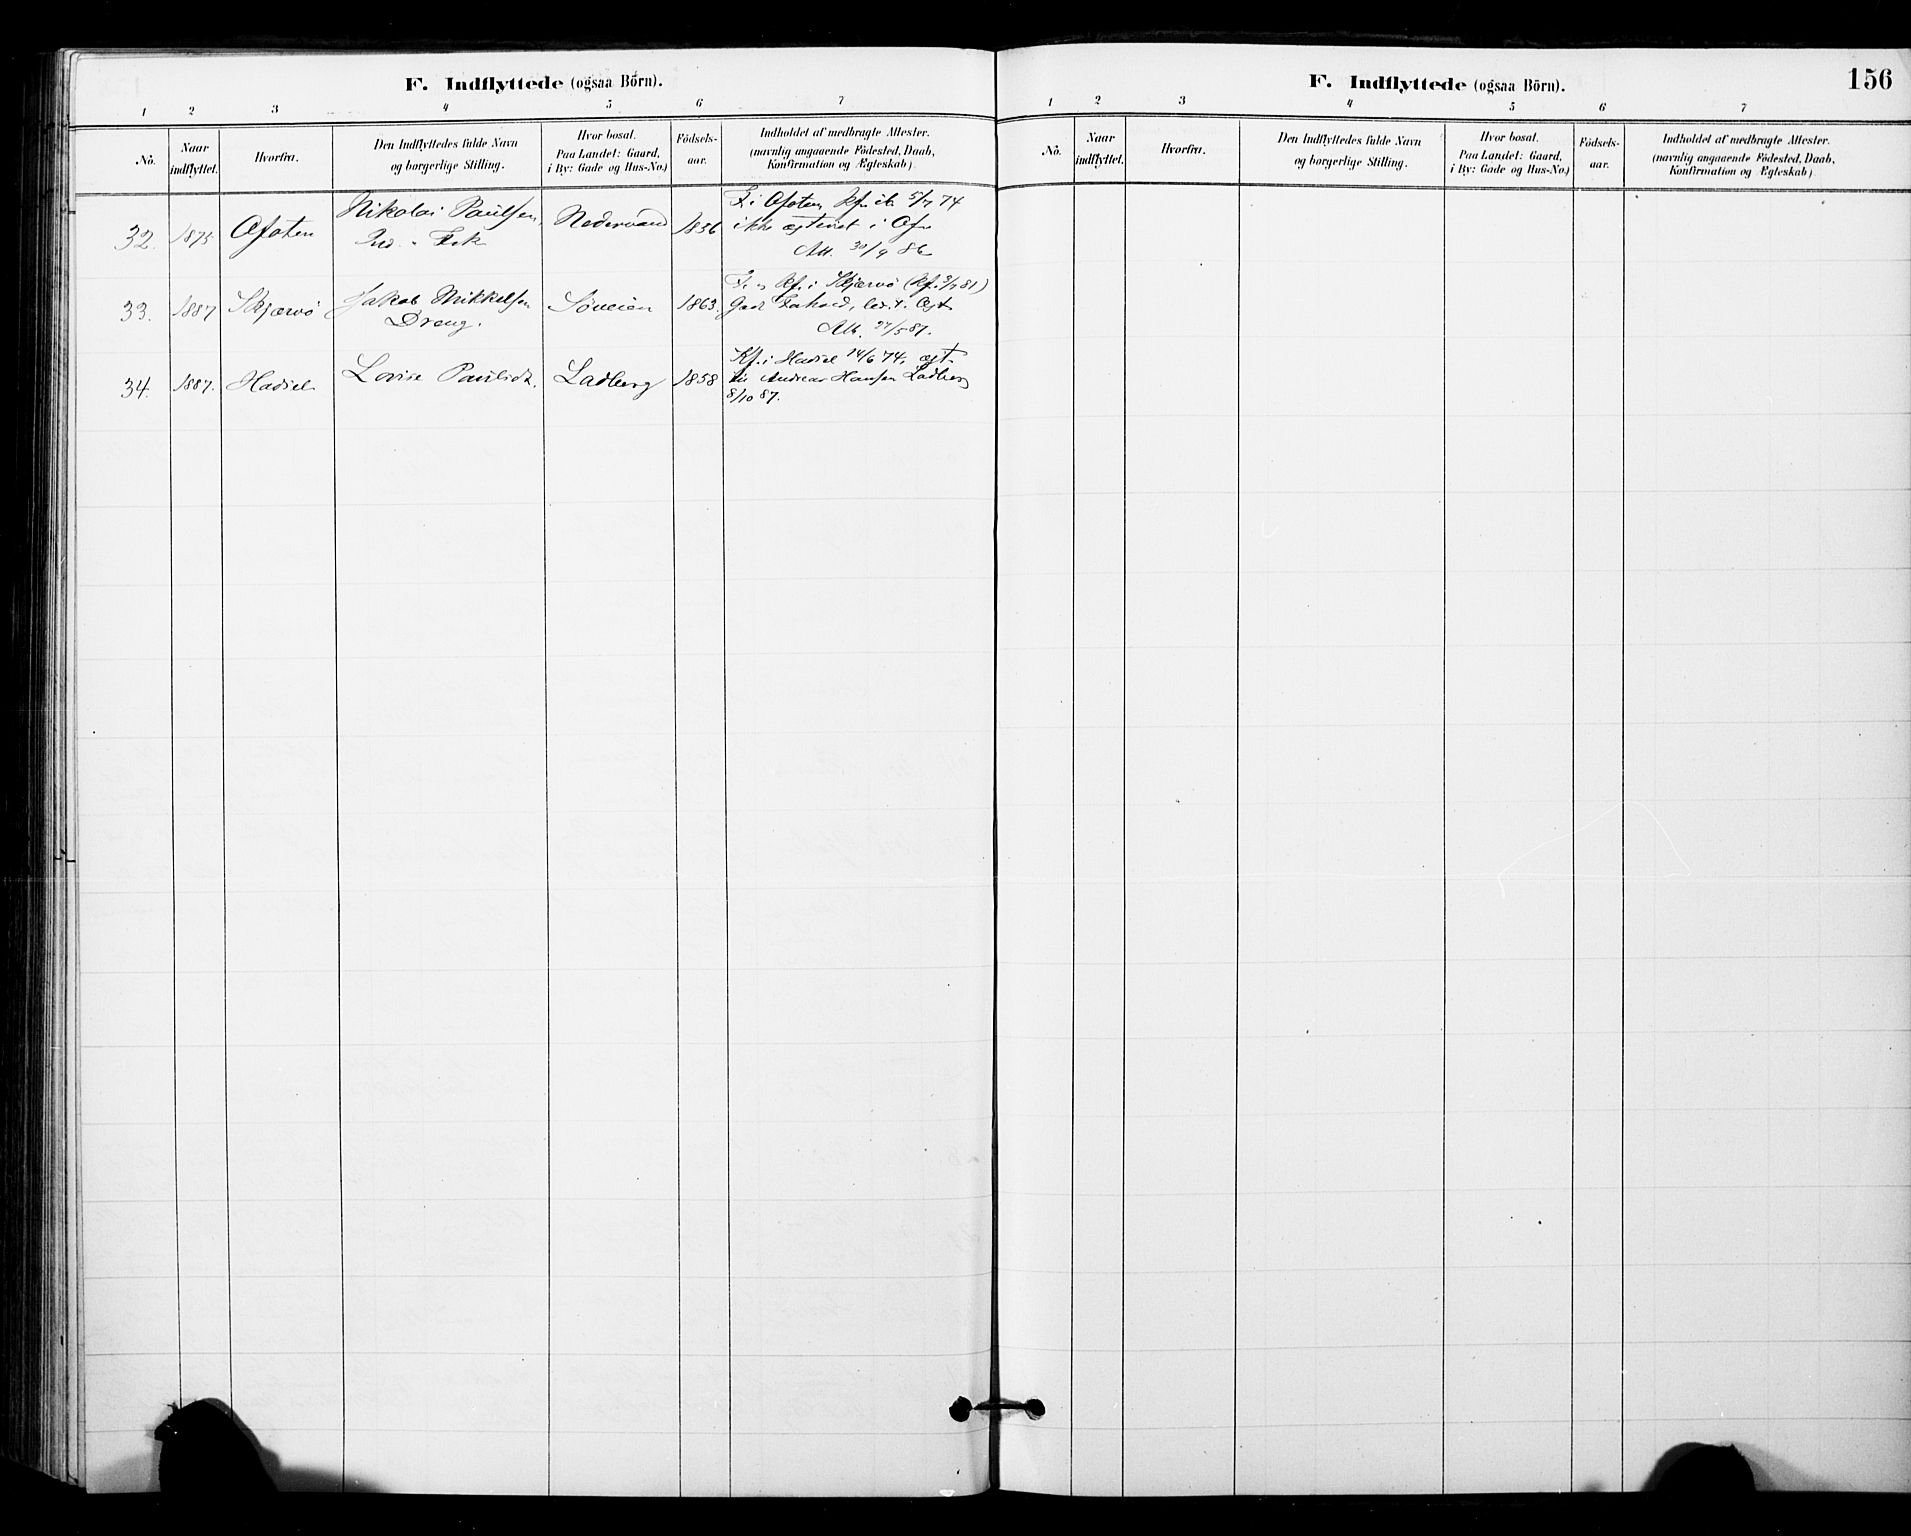 F. Indflyttede (ogsaa Börn).
1 2 3 4 5 6 7
No. Naar indflyttet. Hvorfra. Den Indflyttedes fulde Navn og borgerlige Stilling. Hvor bosat. Paa Landet: Gaard, i By: Gade og Hus-No.) Födsels-aar. Indholdet af medbragte Attester. (navnlig angaaende Födested, Daab, Konfirmation og Ægteskab)
32. 1875 Ofoten Nikolai Paulsen, 1856 F. i Ofoten Kf. ib. 5/7 74
ikke ægteviet i Of.
Att. 30/9 86
33. 1887 Skjærvö Jakob Mikkelsen 1863. F. og Kf. i Skjærvö (Kf. 3/7 81)
Dreng. Godt Forhold, led. t. Ægt.
Att. 27/5 87.
34. 1887. Hadsel Lovise Paulsdt. Ladberg 1858 Kf. i Hadsel 14/6 74, ægt.
til Andreas Hansen Ladberg
8/10 87.
F. Indflyttede (ogsaa Börn). 156
1 2 3 4 5 6 7
No. Naar indflyttet. Hvorfra. Den Indflyttedes fulde Navn og borgerlige Stilling. Hvor bosat. Paa Landet: Gaard, i By: Gade og Hus-No.) Födsels-aar. Indholdet af medbragte Attester. (navnlig angaaende Födested, Daab, Konfirmation og Ægteskab)